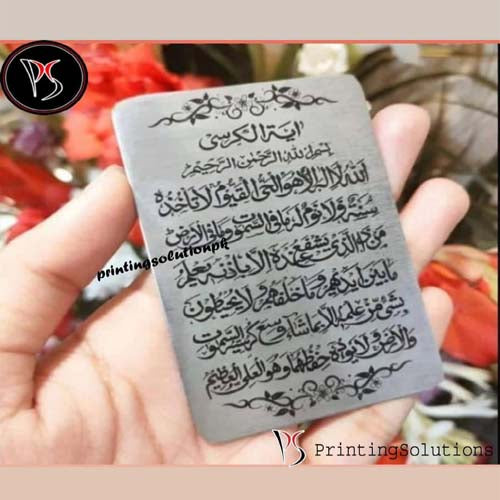 PS
آية الكرسي
بسم الله الرحمن الرحيم
الله لا اله الا هو الحي القيوم لا تاخذه
سنة ولا نوم له ما في السموت وما في الارض
من ذا الذي يشفع عنده الا باذنه يعلم
ما بين ايديهم وما خلفهم ولا يحيطون
بشيء من علمه الا بما شاء وسع كرسيه السموت
والارض ولا يؤده حفظهما وهو العلي العظيم
printingsolutionpk
PS PrintingSolutions